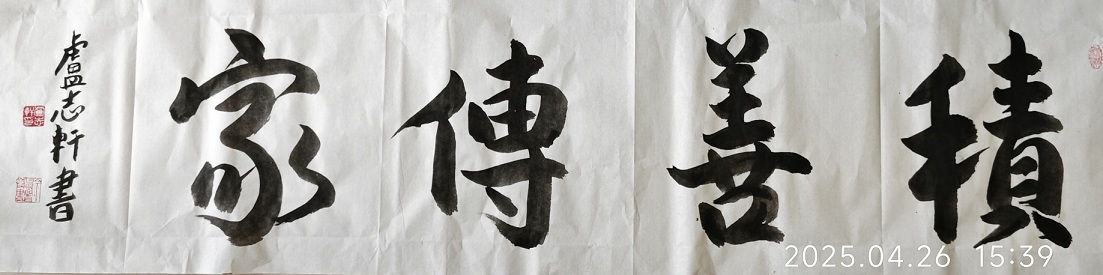 積善傳家
盧志軒書
2025.04.26 15:39